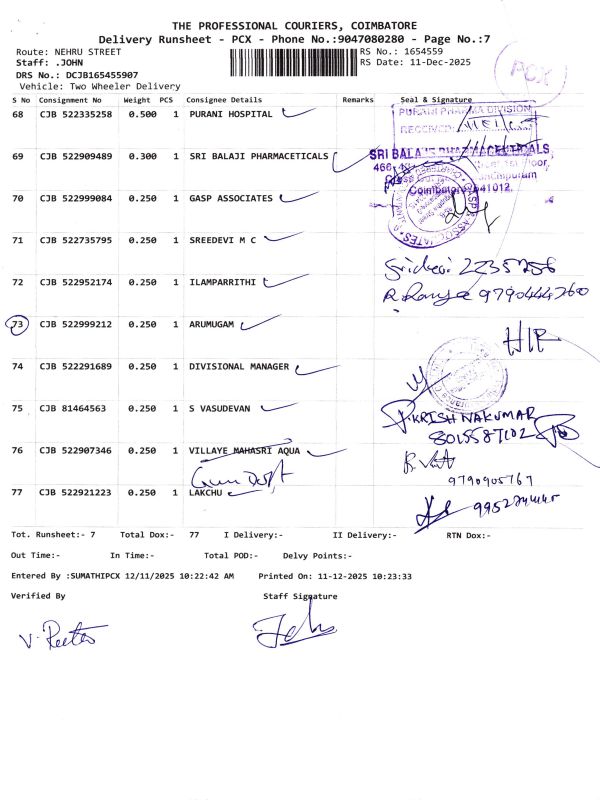 THE PROFESSIONAL COURIERS, COIMBATORE
Delivery Runsheet - PCX - Phone No.:9047080280 - Page No.:7
Route: NEHRU STREET
RS No.: 1654559
Staff: .JOHN
RS Date: 11-Dec-2025
DRS No.: DCJB165455907
Vehicle: Two Wheeler Delivery
PCX
S No Consignment No Weight PCS Consignee Details Remarks Seal & Signature
68 CJB 522335258 0.500 1 PURANI HOSPITAL
PURANI PHARMA DIVISION
RECEIVED
69 CJB 522909489 0.300 1 SRI BALAJI PHARMACEUTICALS
SRI BALAJI PHARMACEUTICALS
Coimbatore-641012
70 CJB 522999084 0.250 1 GASP ASSOCIATES
71 CJB 522735795 0.250 1 SREEDEVI M C
Sridevi 2235256
72 CJB 522952174 0.250 1 ILAMPARRITHI
73 CJB 522999212 0.250 1 ARUMUGAM
74 CJB 522291689 0.250 1 DIVISIONAL MANAGER
75 CJB 81464563 0.250 1 S VASUDEVAN
KRISHNAKUMAR
76 CJB 522907346 0.250 1 VILLAYE MAHASRI AQUA
9790905767
77 CJB 522921223 0.250 1 LAKCHU
Tot. Runsheet:- 7 Total Dox:- 77 I Delivery:- II Delivery:- RTN Dox:-
Out Time:- In Time:- Total POD:- Delvy Points:-
Entered By :SUMATHIPCX 12/11/2025 10:22:42 AM Printed On: 11-12-2025 10:23:33
Verified By Staff Signature